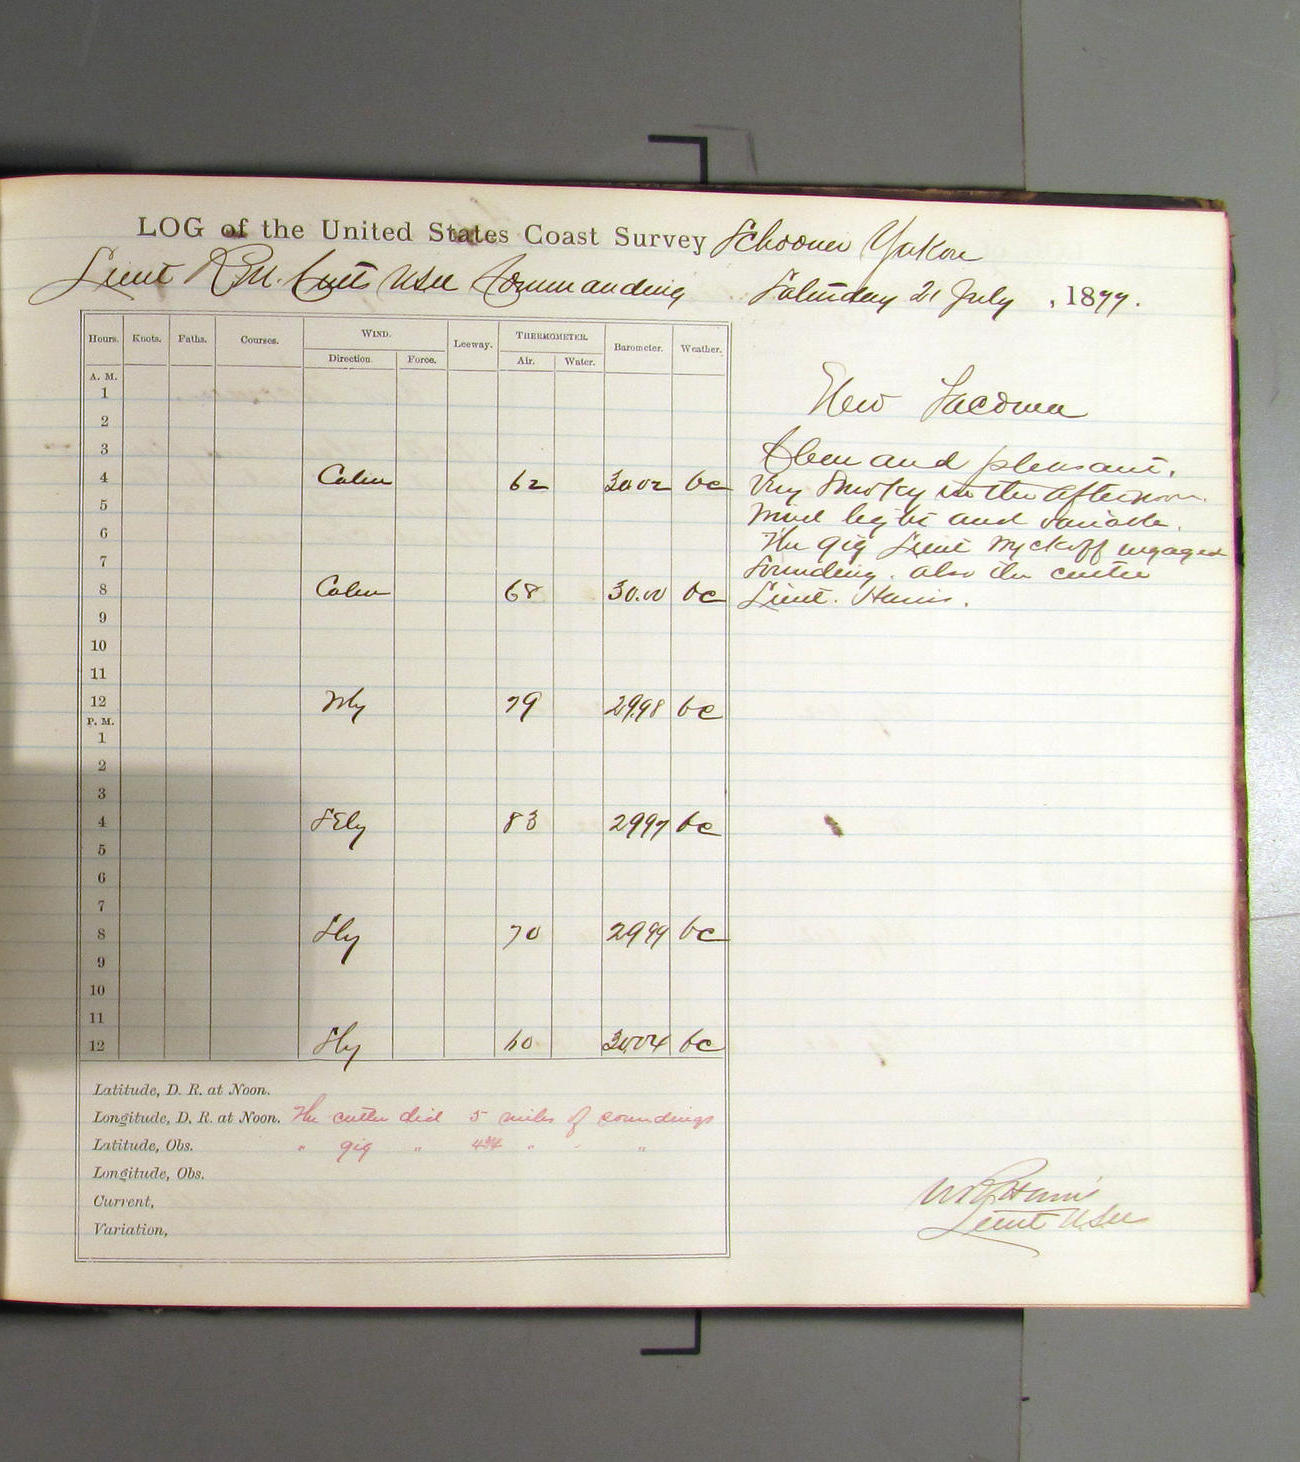 LOG of the United States Coast Survey Schooner Yukon
Lieut R.M. Cutts USN Commanding Saturday 21 July , 1877.
Hours. Knots. Faths. Courses. WIND. Leeway. THERMOMETER. Barometer. Weather.
Direction. Force. Air. Water.
A. M.
1
2
3
4 Calm 62 30.02 bc
5
6
7
8 Calm 68 30.00 bc
9
10
11
12 Nly 79 29.98 bc
P. M.
1
2
3
4 SEly 83 2997 bc
5
6
7
8 Sly 70 2999 bc
9
10
11
12 Sly 60 30.04 bc
Latitude, D. R. at Noon.
Longitude, D. R. at Noon. The cutter did 5 miles of soundings
Latitude, Obs. " gig " " " "
Longitude, Obs.
Current,
Variation,
New Tacoma
Clear and pleasant.
Very smoky in the afternoon.
Wind light and variable.
The gig Lieut Wyckoff engaged
sounding. also the cutter
Lieut. Harris.
Harris
Lieut USN